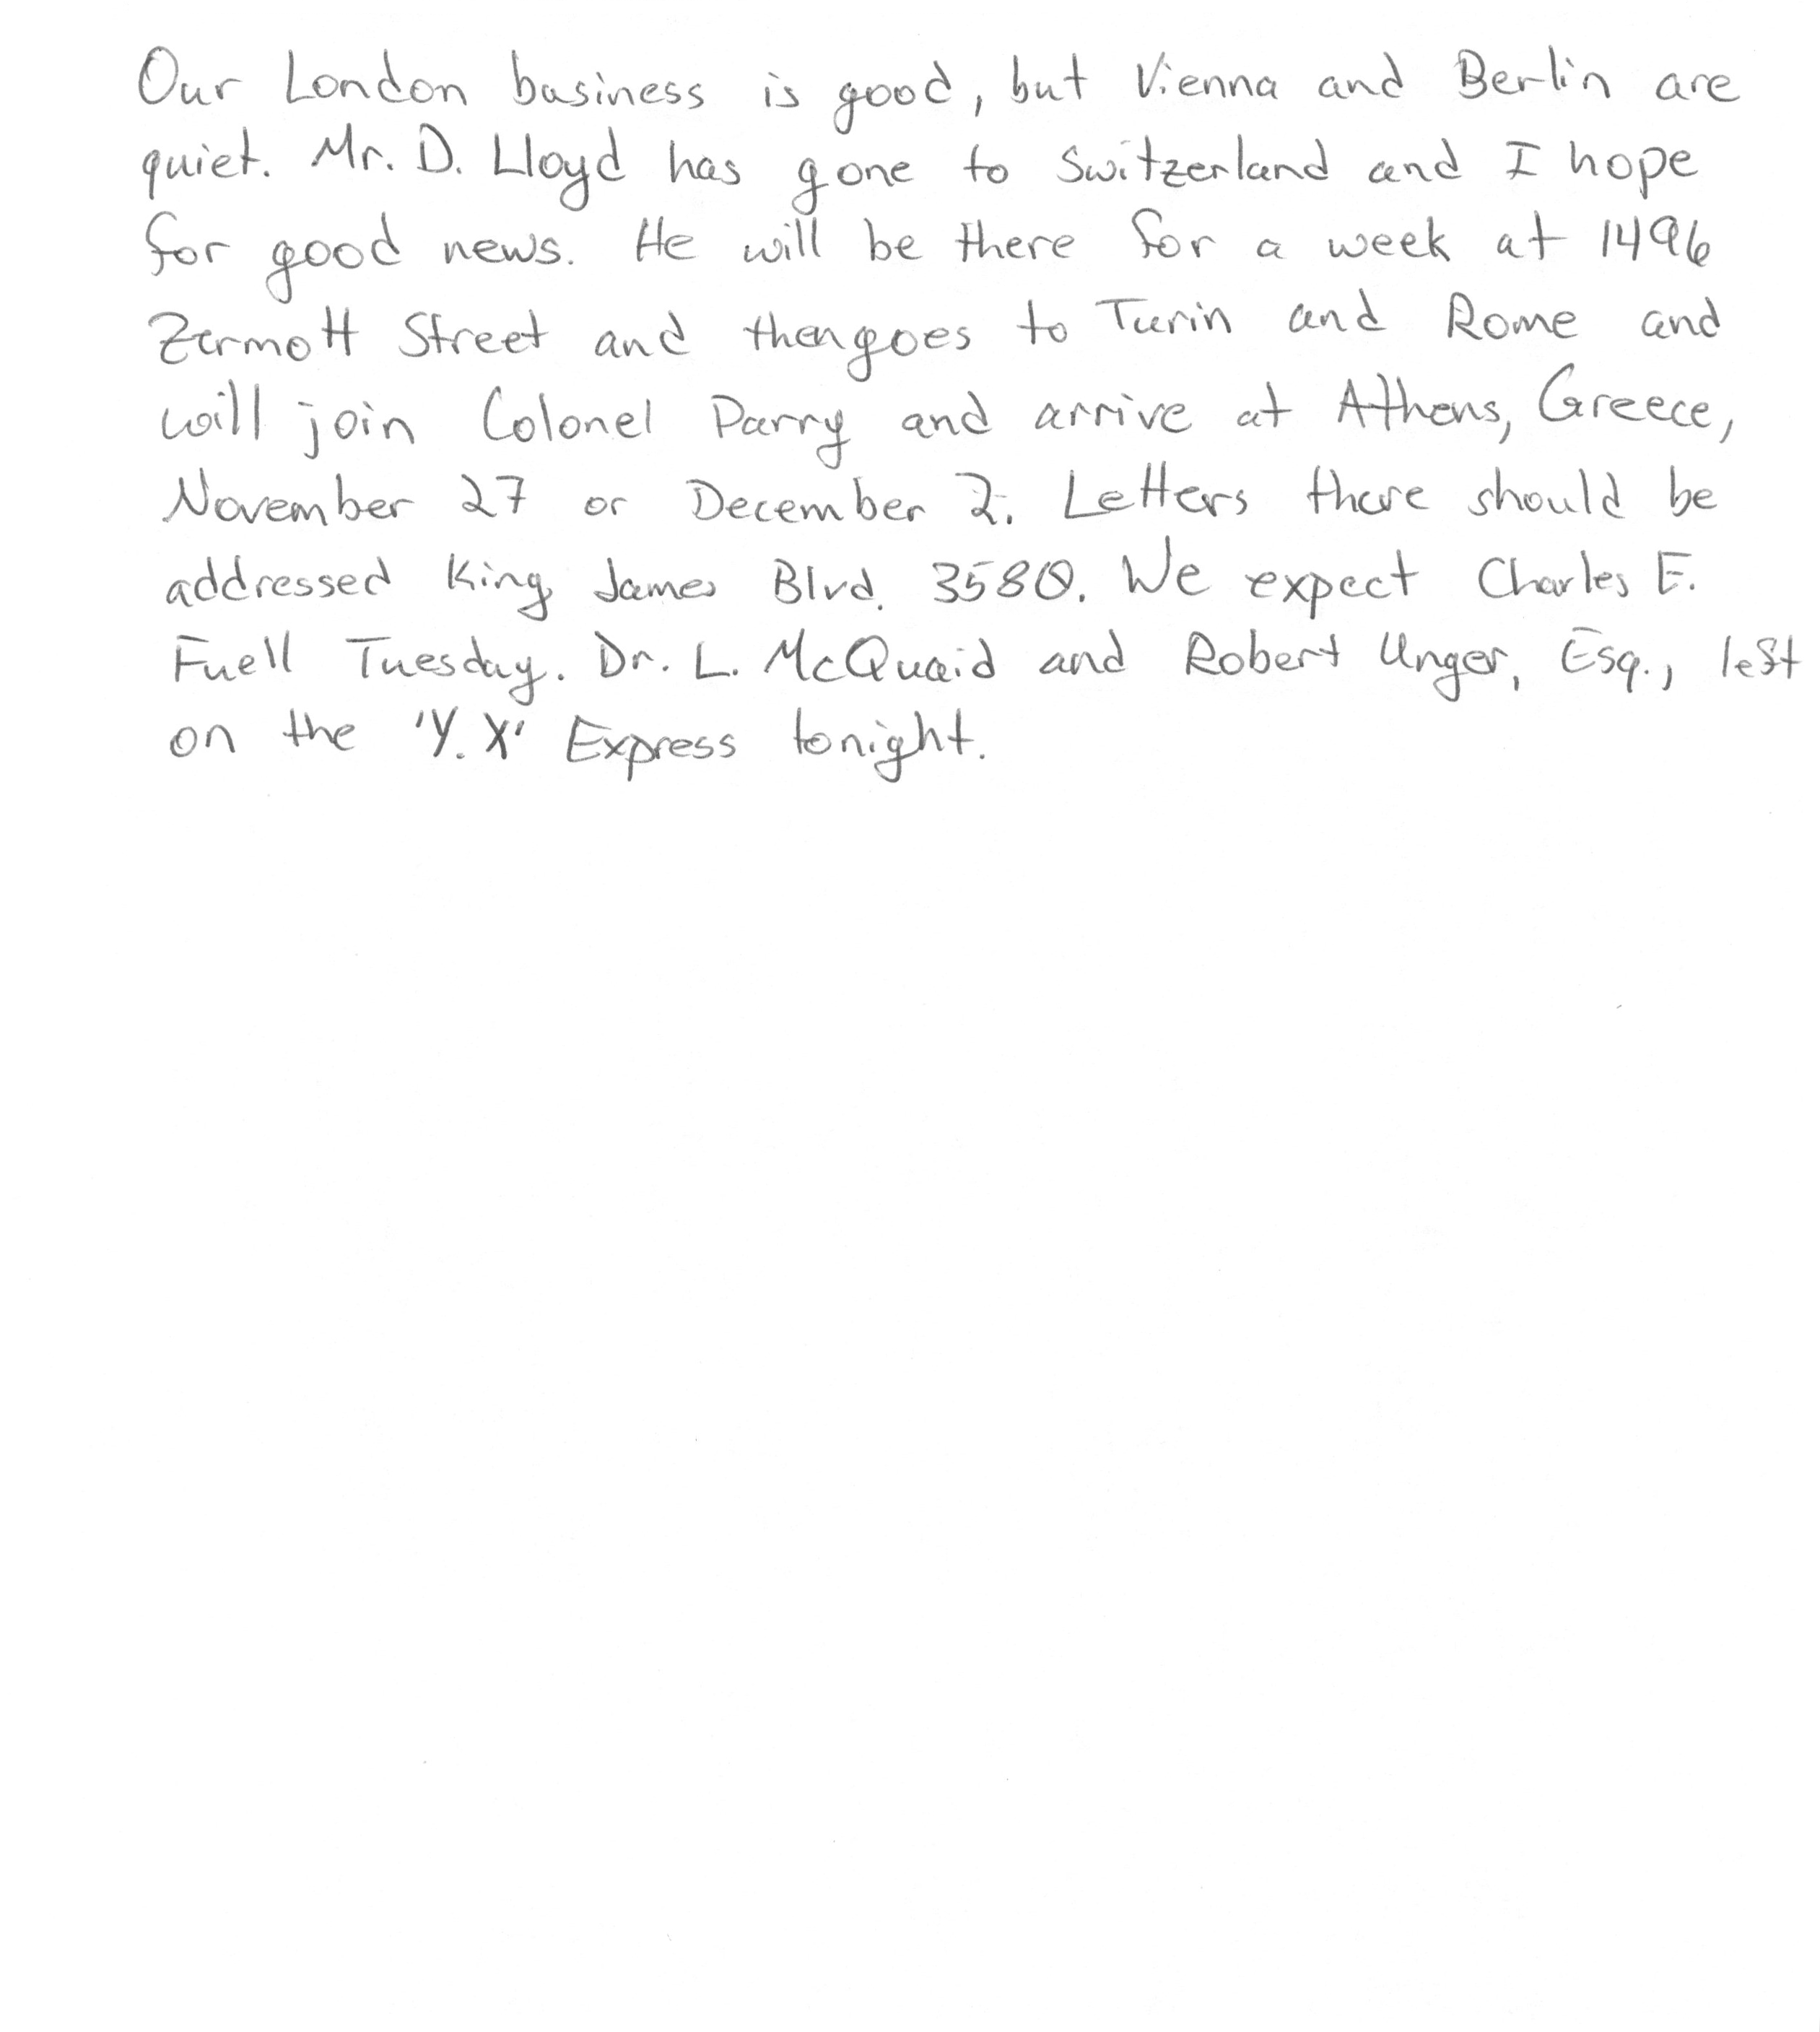 Our London business is good, but Vienna and Berlin are
quiet. Mr. D. Lloyd has gone to Switzerland and I hope
for good news. He will be there for a week at 1496
Zermott Street and then goes to Turin and Rome and
will join Colonel Parry and arrive at Athens, Greece,
November 27 or December 2. Letters there should be
addressed King James Blvd. 3580. We expect Charles E.
Fuell Tuesday. Dr. L. McQuaid and Robert Unger, Esq., left
on the 'Y. X' Express tonight.